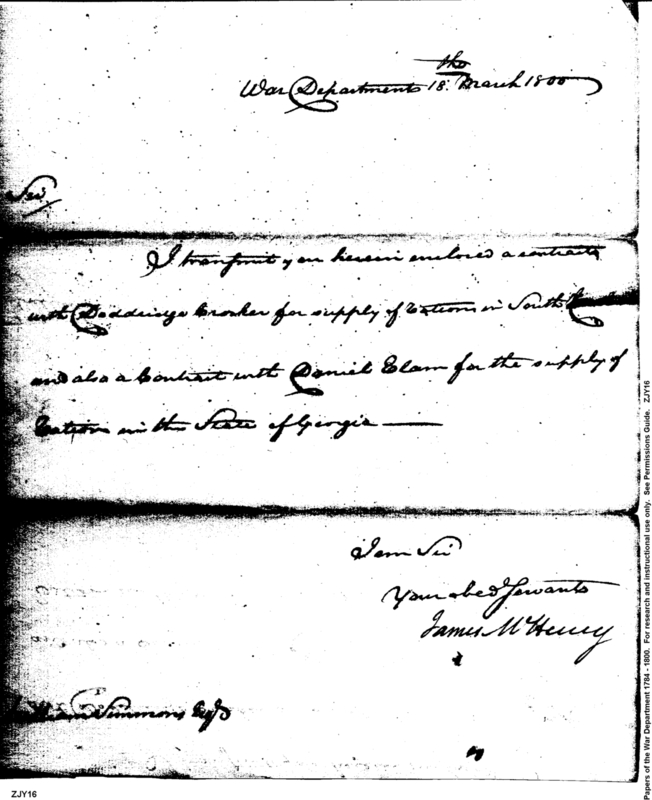 the
War Department 18. March 1800
Sir,
I transmit you herein enclosed a contract
with Doddridge Crocker for supply of rations in South
and also a Contract with Daniel Elam for the supply of
rations in the State of Georgia —
I am Sir
Your obed Servant
James McHenry
William Simmons Esqr
ZJY16
Papers of the War Department 1784 - 1800. For research and instructional use only. See Permissions Guide. ZJY16